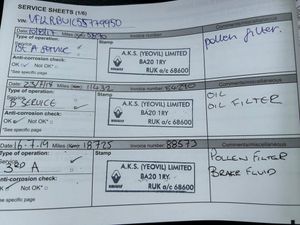 SERVICE SHEETS (1/6)
VIN:
Date
Miles
Invoice number
Type of operation:
Stamp
1ST A SERVICE
A.K.S. (YEOVIL) LIMITED
BA20 1RY
RUK a/c 68600
pollen filter.
Anti-corrosion check:
OK Not OK*
*See specific page
Date Miles 11432 Invoice number
Type of operation:
Stamp
B SERVICE
A.K.S. (YEOVIL) LIMITED
BA20 1RY
RUK a/c 68600
OIL
OIL FILTER
Anti-corrosion check:
OK Not OK*
*See specific page
Date 16.7.19 Miles 18725 Invoice number 88573 Comments/miscellaneous
Type of operation:
Stamp
Service
3RD A
A.K.S. (YEOVIL) LIMITED
BA20 1RY.
RUK a/c 68600
POLLEN FILTER
BRAKE FLUID
Anti-corrosion check:
OK Not OK*
*See specific page